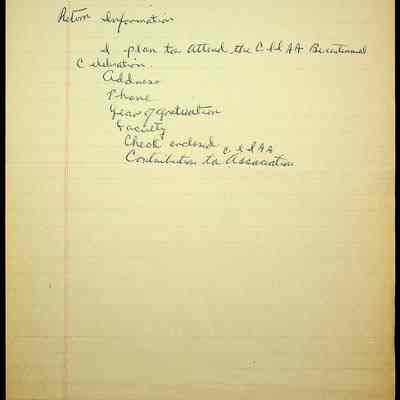 Return Information
I plan to attend the C I I AA Bicentennial
Celebration.
Address
Phone
Year of graduation
Faculty
Check enclosed
C I I AA
Contribution to Association